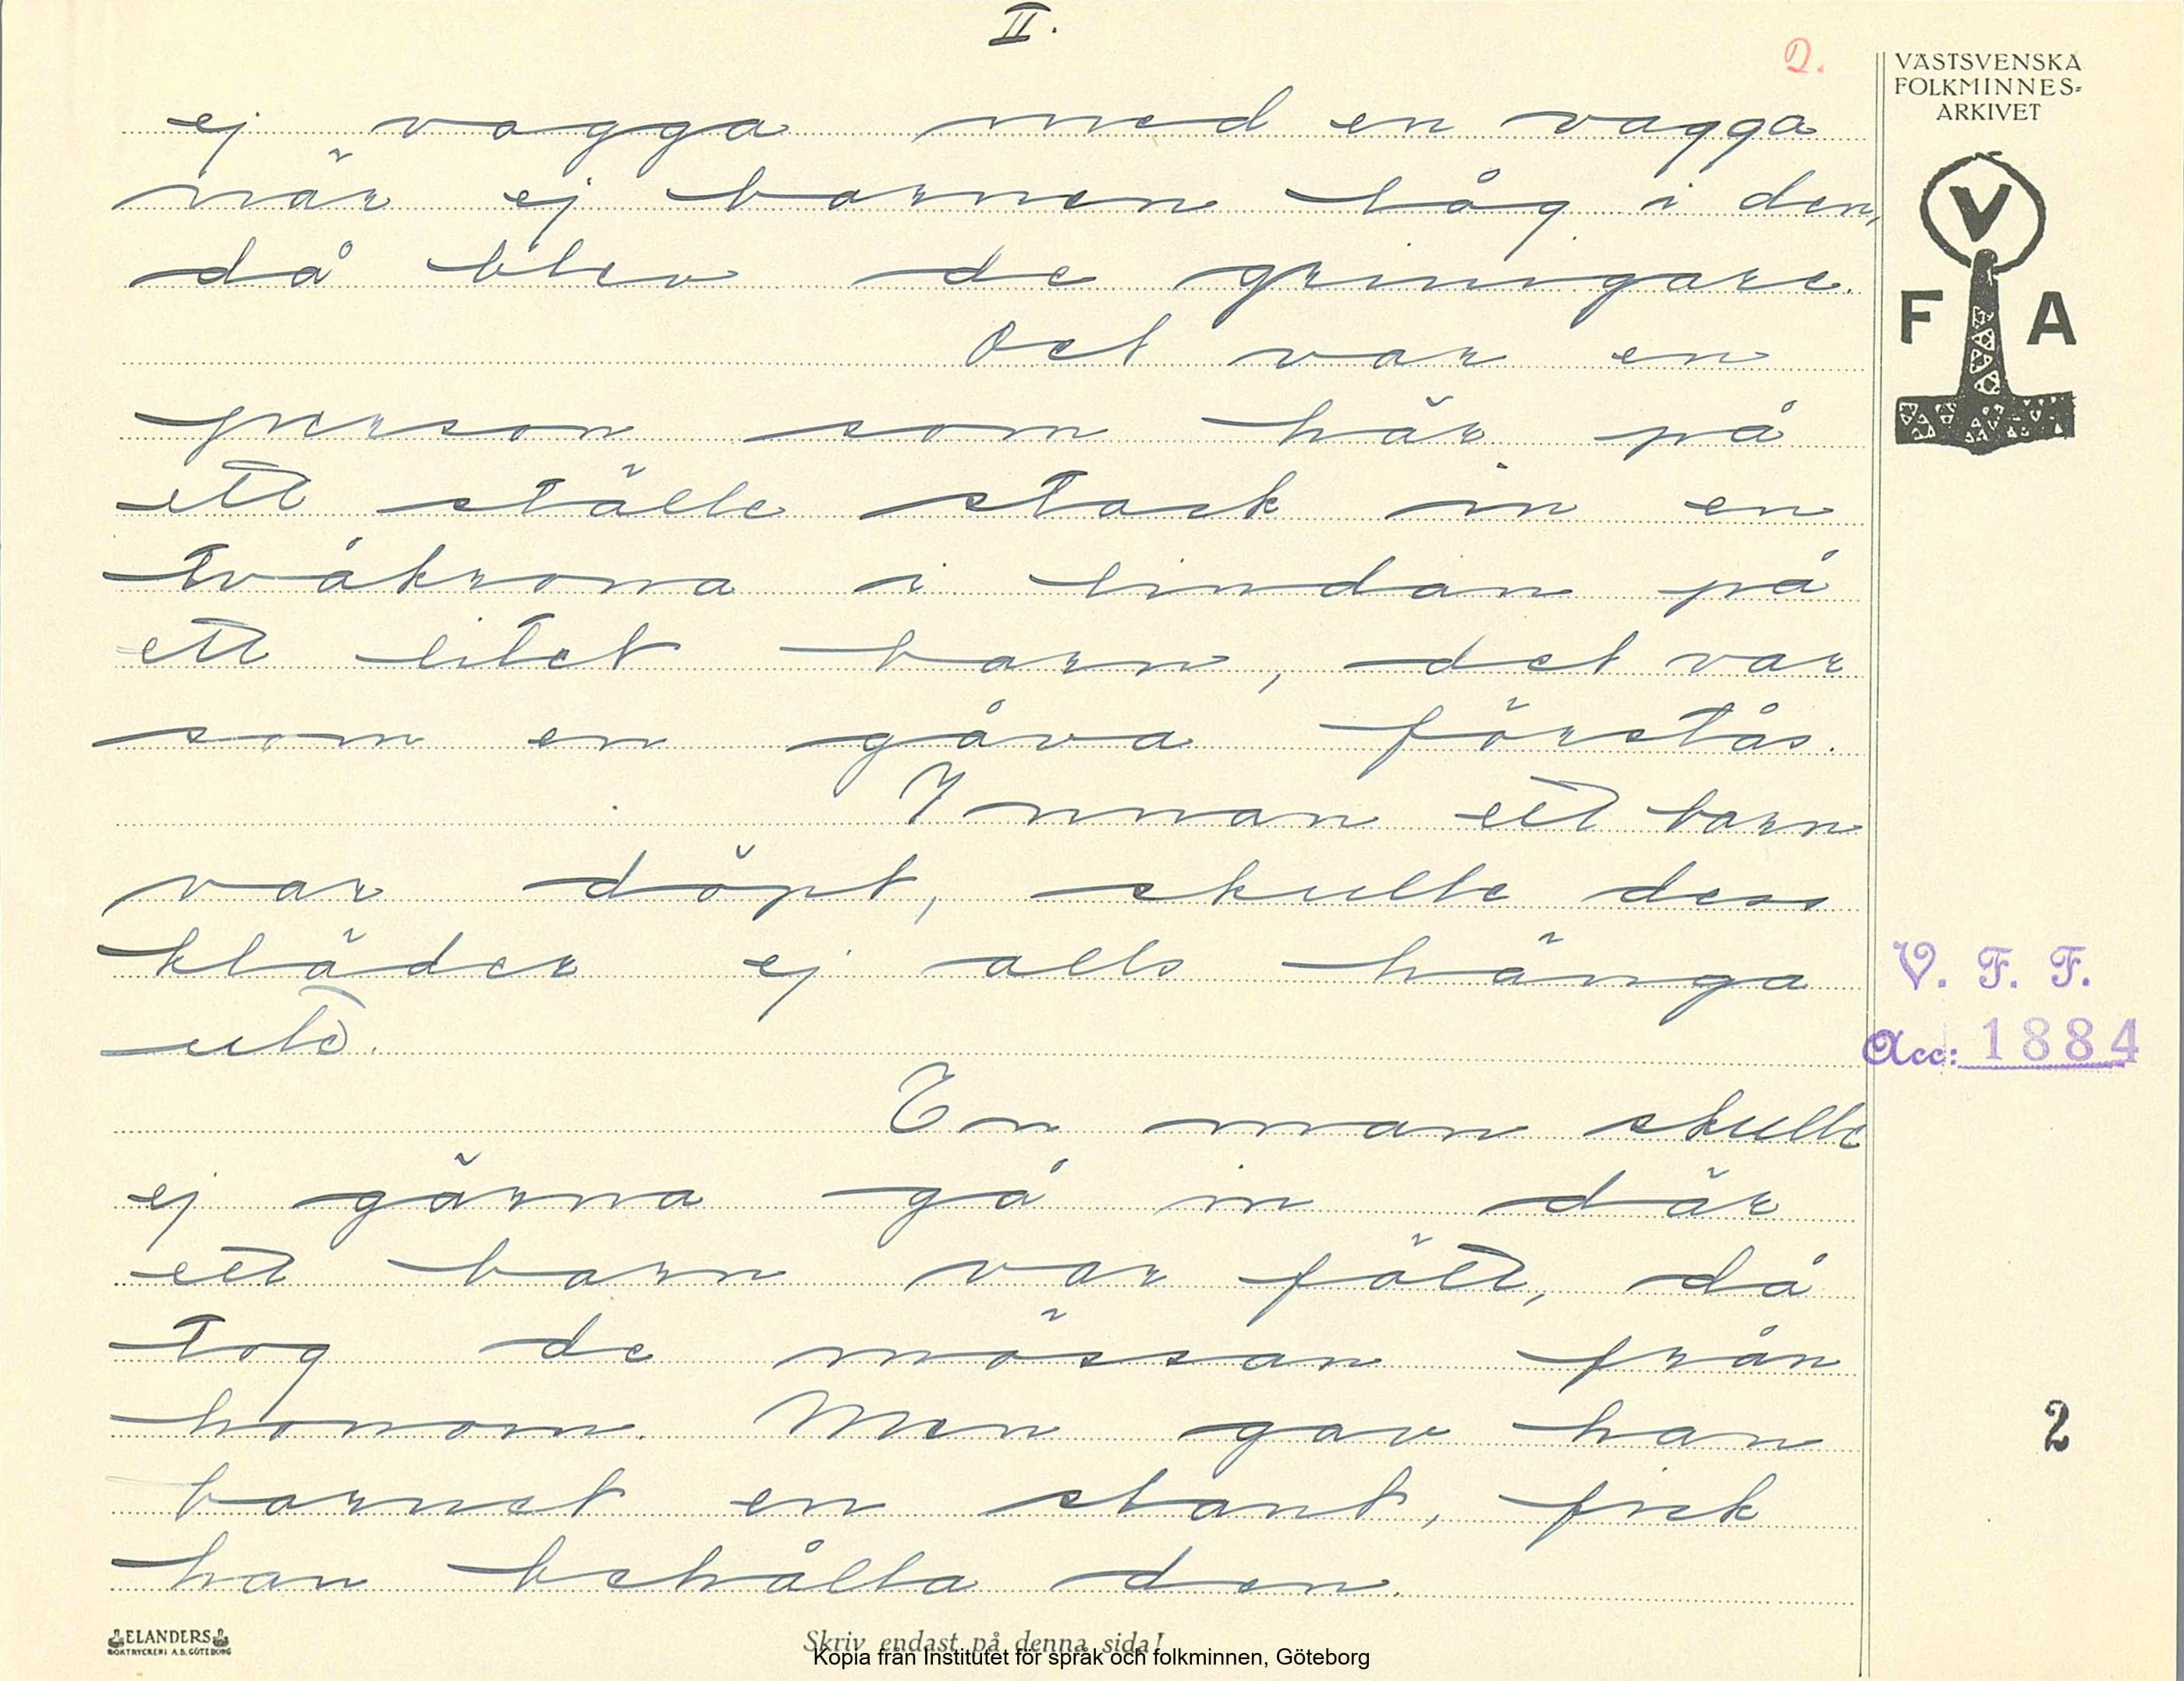 II.
2.
VÄSTSVENSKA
FOLKMINNES-
ARKIVET
V
F A
ej vagga med en vagga
när ej barnen låg i den,
då blev de griningare.
Det var en
person som här på
ett ställe stack in en
tvåkrona i lindan på
ett litet barn, det var
som en gåva förstås.
Innan ett barn
var döpt, skulle dess
kläder ej alls hänga
ute.
V. F. F.
Acc: 1884
En man skulle
ej gärna gå in där
ett barn var fött, då
tog de mössan från
honom. Men gav han
2
barnet en slant, fick
han behålla den.
ELANDERS
BOKTRYCKERI A.B. GÖTEBORG
Skriv endast på denna sida!
Kopia från Institutet för språk och folkminnen, Göteborg